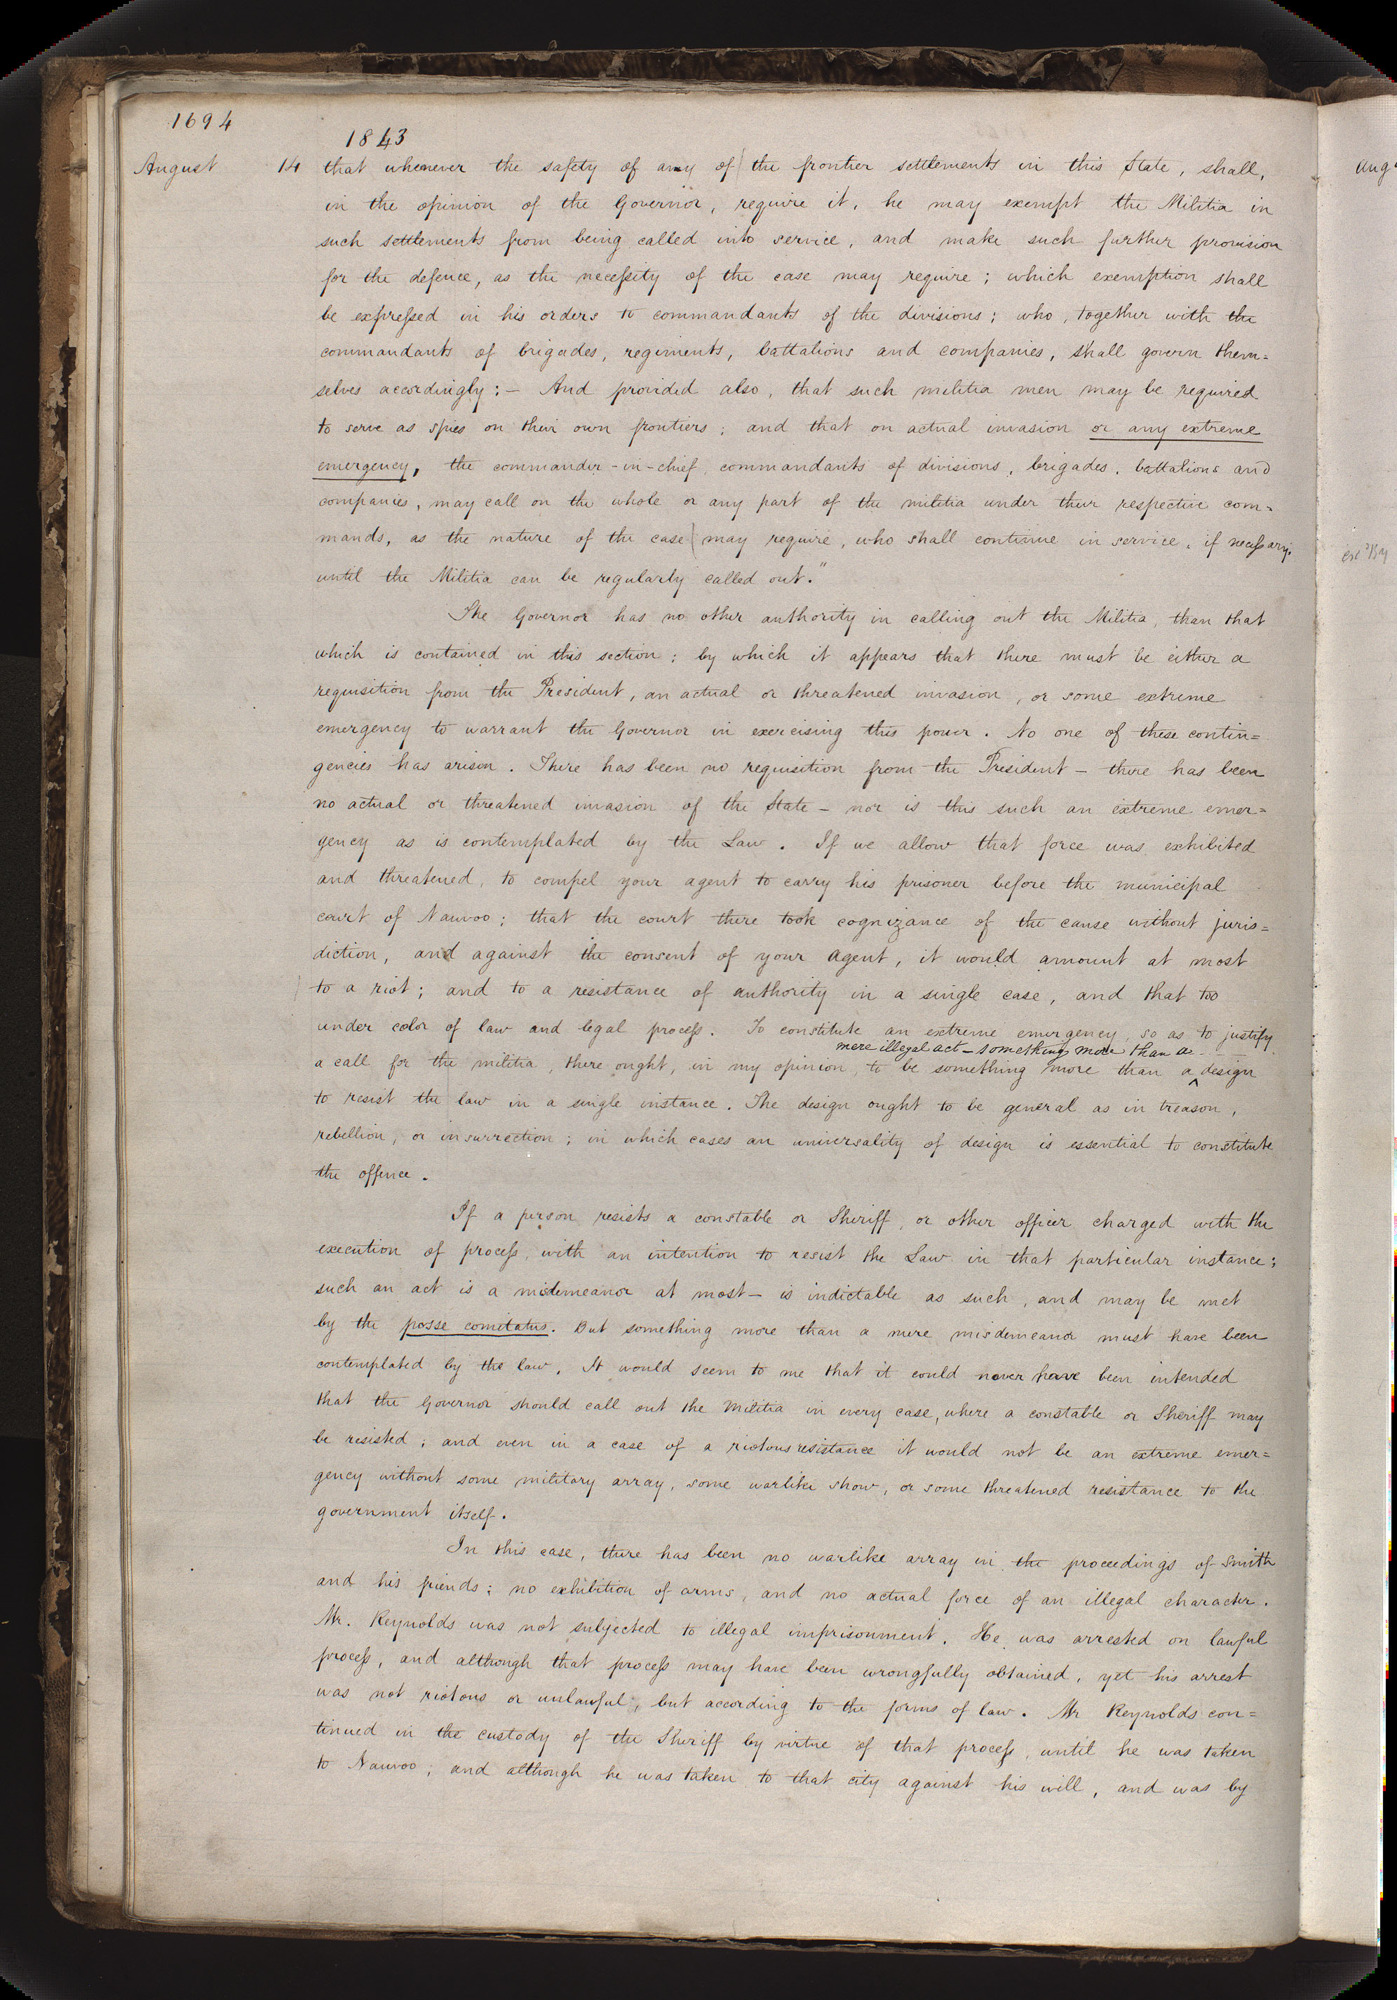 1694
1843
August 14 that whenever the safety of any of the frontier settlements in this State, shall,
in the opinion of the Governor, require it, he may exempt the Militia in
such settlements from being called into service, and make such further provision
for the defence, as the necessity of the case may require; which exemption shall
be expressed in his orders to commandants of the divisions; who, together with the
commandants of brigades, regiments, battalions and companies, shall govern them=
selves accordingly:— And provided also, that such militia men may be required
to serve as spies on their own frontiers; and that on actual invasion or any extreme
emergency, the commander-in-chief, commandants of divisions, brigades, battalions and
companies, may call on the whole or any part of the militia under their respective com=
mands, as the nature of the case may require, who shall continue in service, if necessary.
until the Militia can be regularly called out."
The Governor has no other authority in calling out the Militia, than that
which is contained in this section; by which it appears that there must be either a
requisition from the President, an actual or threatened invasion, or some extreme
emergency to warrant the Governor in exercising this power. No one of these contin=
gencies has arisen. There has been no requisition from the President — there has been
no actual or threatened invasion of the State — nor is this such an extreme emer=
gency as is contemplated by the Law. If we allow that force was exhibited
and threatened, to compel your agent to carry his prisoner before the municipal
court of Nauvoo; that the court there took cognizance of the cause without juris=
diction, and against the consent of your agent, it would amount at most
to a riot; and to a resistance of authority in a single case, and that too
under color of law and legal process. To constitute an extreme emergency, so as to justify
mere illegal act — something more than a
a call for the militia, there ought, in my opinion, to be something more than a ^ design
to resist the law in a single instance. The design ought to be general as in treason,
rebellion, or insurrection; in which cases an universality of design is essential to constitute
the offence.
If a person resists a constable or Sheriff, or other officer charged with the
execution of process, with an intention to resist the Law in that particular instance;
such an act is a misdemeanor at most — is indictable as such, and may be met
by the posse comitatus. But something more than a mere misdemeanor must have been
contemplated by the law. It would seem to me that it could never have been intended
that the Governor should call out the Militia in every case, where a constable or Sheriff may
be resisted; and even in a case of a riotous resistance it would not be an extreme emer=
gency without some military array, some warlike show, or some threatened resistance to the
government itself.
In this case, there has been no warlike array in the proceedings of Smith
and his friends; no exhibition of arms, and no actual force of an illegal character.
Mr. Reynolds was not subjected to illegal imprisonment. He was arrested on lawful
process, and although that process may have been wrongfully obtained, yet his arrest
was not riotous or unlawful, but according to the forms of law. Mr Reynolds con=
tinued in the custody of the Sheriff by virtue of that process, until he was taken
to Nauvoo; and although he was taken to that city against his will, and was by